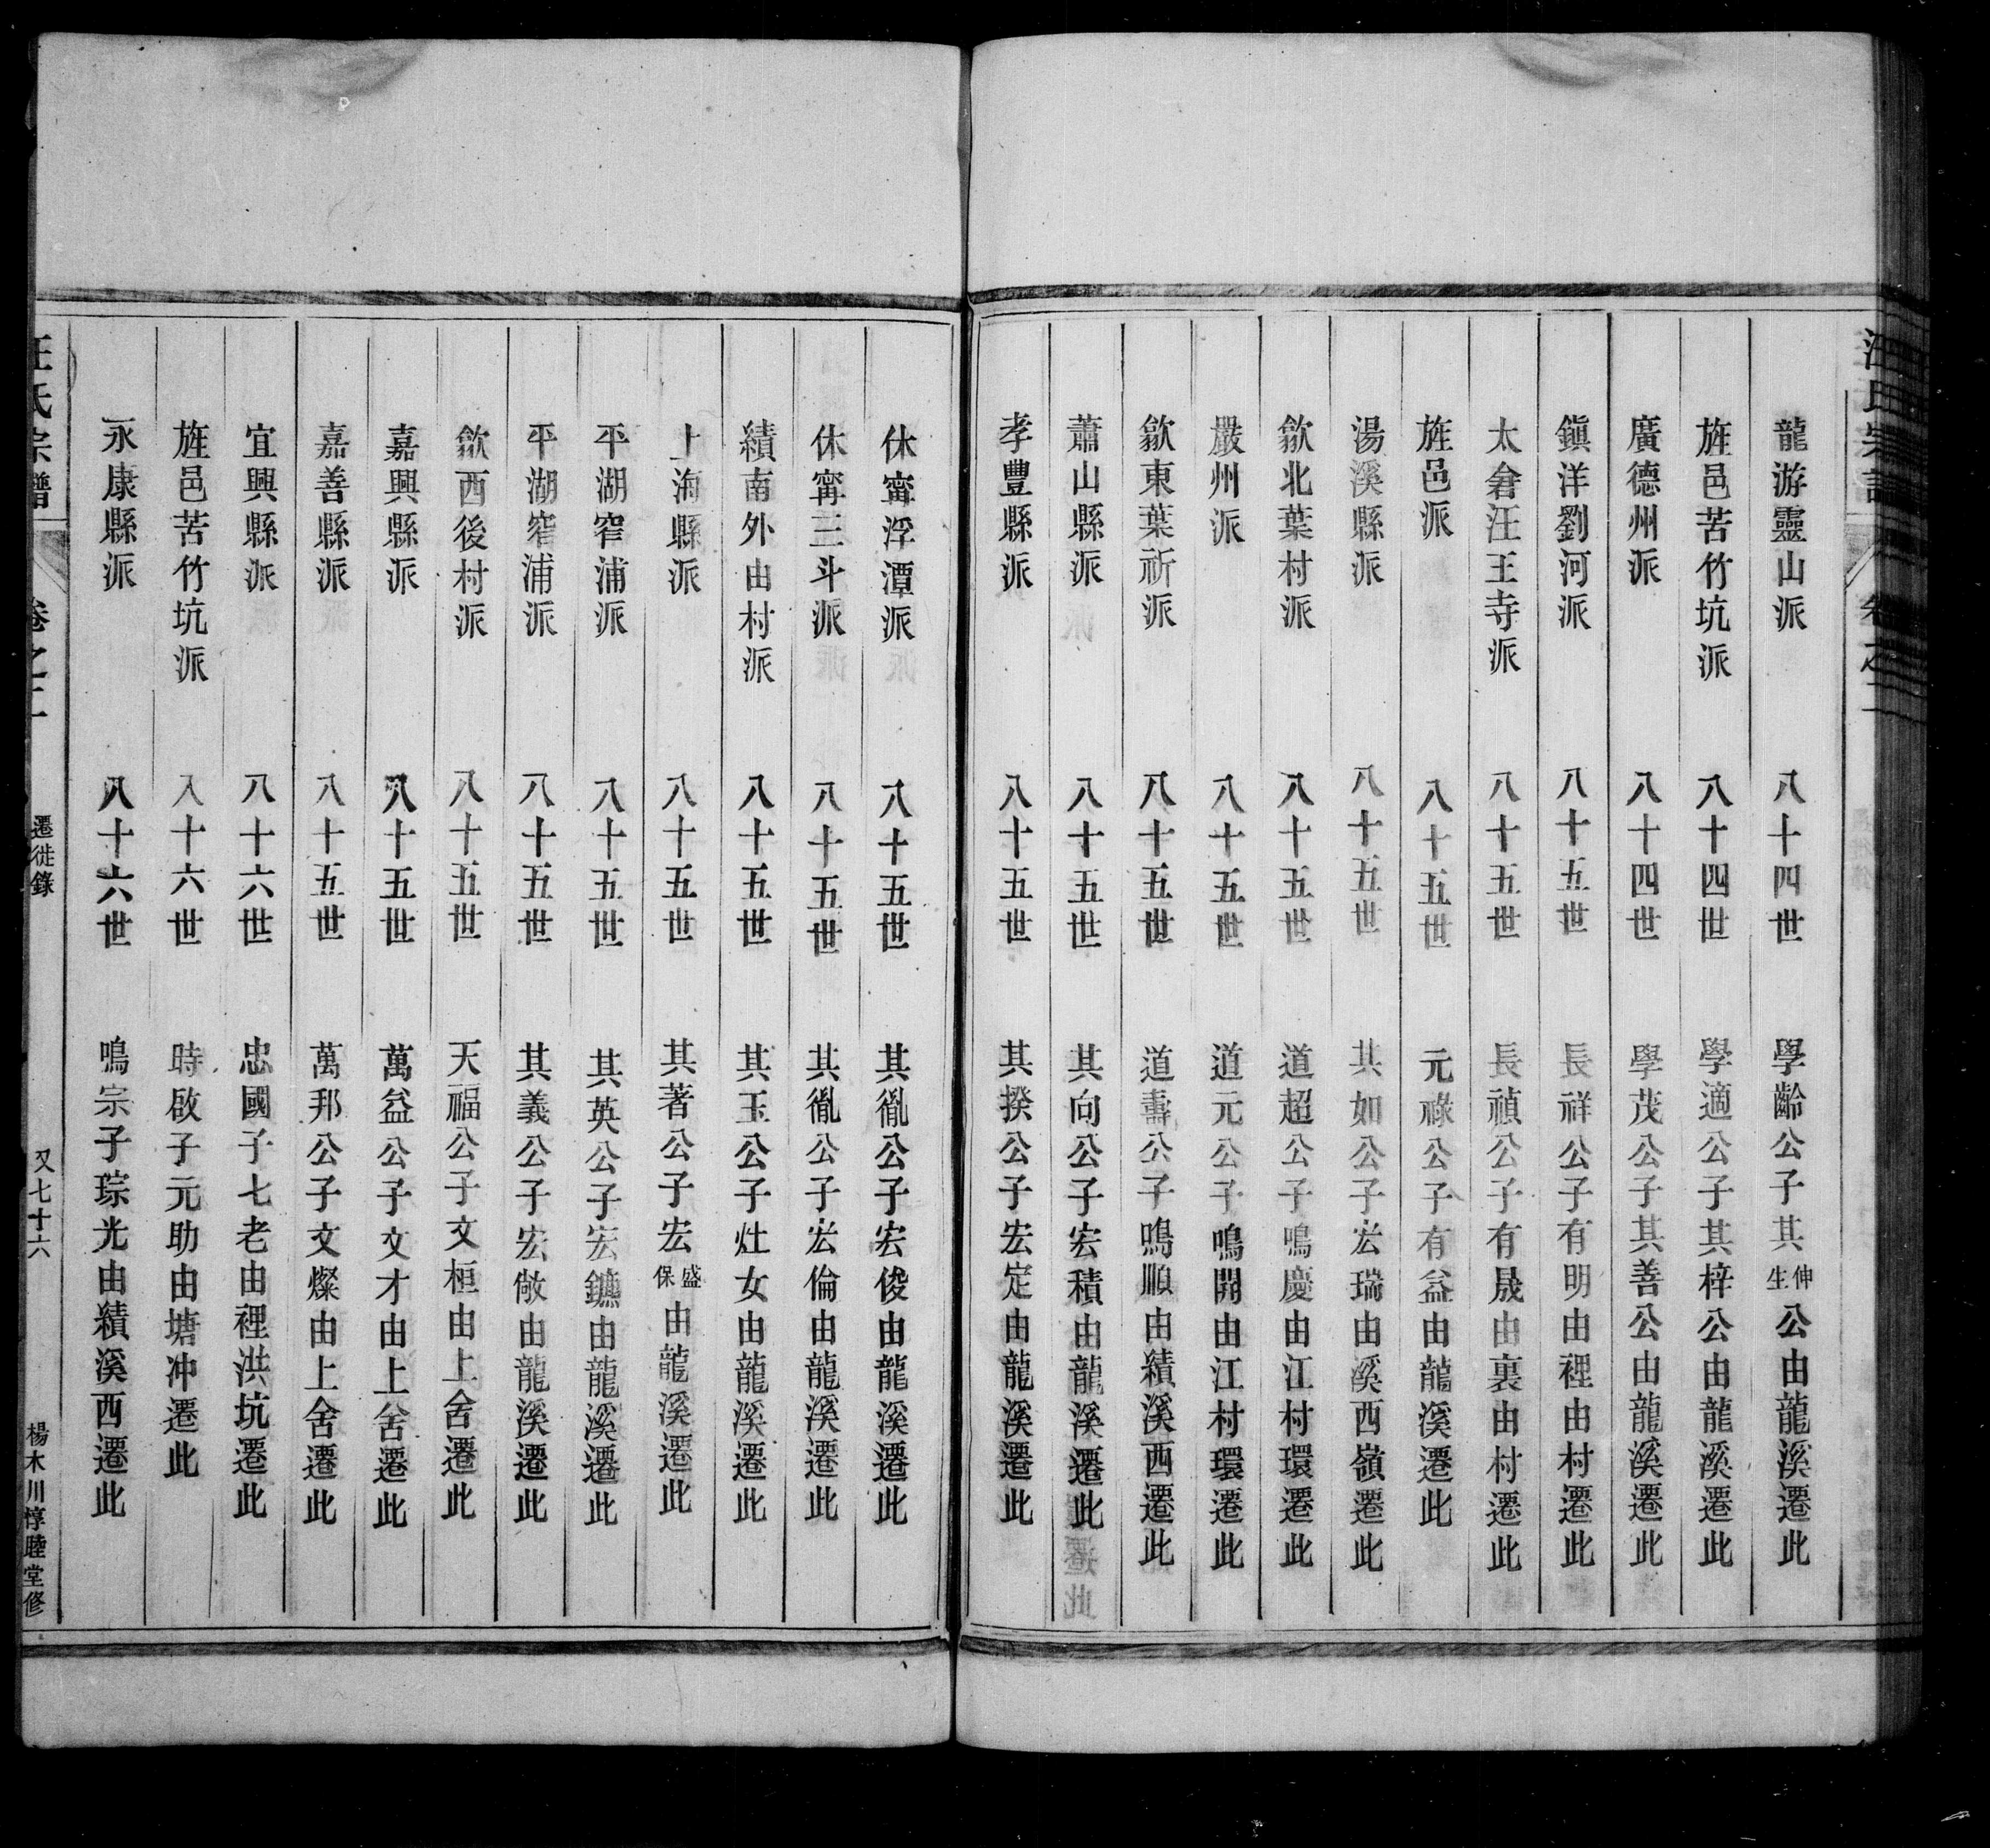 汪氏宗譜 卷之二
龍游靈山派 八十四世 學齡公子其伸生公由龍溪遷此
旌邑苦竹坑派 八十四世 學適公子其梓公由龍溪遷此
廣德州派 八十四世 學茂公子其善公由龍溪遷此
鎮洋劉河派 八十五世 長祥公子有明由裡由村遷此
太倉汪王寺派 八十五世 長禎公子有晟由裏由村遷此
旌邑派 八十五世 元祿公子有益由龍溪遷此
湯溪縣派 八十五世 其如公子宏瑞由溪西嶺遷此
歙北葉村派 八十五世 道超公子鳴慶由江村環遷此
嚴州派 八十五世 道元公子鳴開由江村環遷此
歙東葉祈派 八十五世 道壽公子鳴順由績溪西遷此
蕭山縣派 八十五世 其向公子宏積由龍溪遷此
孝豐縣派 八十五世 其揆公子宏定由龍溪遷此
休寗浮潭派 八十五世 其胤公子宏俊由龍溪遷此
休寗三斗派 八十五世 其胤公子宏倫由龍溪遷此
績南外由村派 八十五世 其玉公子灶女由龍溪遷此
上海縣派 八十五世 其著公子宏盛保由龍溪遷此
平湖窄浦派 八十五世 其英公子宏鑣由龍溪遷此
平湖窄浦派 八十五世 其義公子宏敞由龍溪遷此
歙西後村派 八十五世 天福公子文桓由上舍遷此
嘉興縣派 八十五世 萬益公子文才由上舍遷此
嘉善縣派 八十五世 萬邦公子文燦由上舍遷此
宜興縣派 八十六世 忠國子七老由裡洪坑遷此
旌邑苦竹坑派 八十六世 時啟子元助由塘冲遷此
永康縣派 八十六世 鳴宗子琮光由績溪西遷此
汪氏宗譜 卷之二 遷徙錄 又七十六 楊木川惇睦堂修